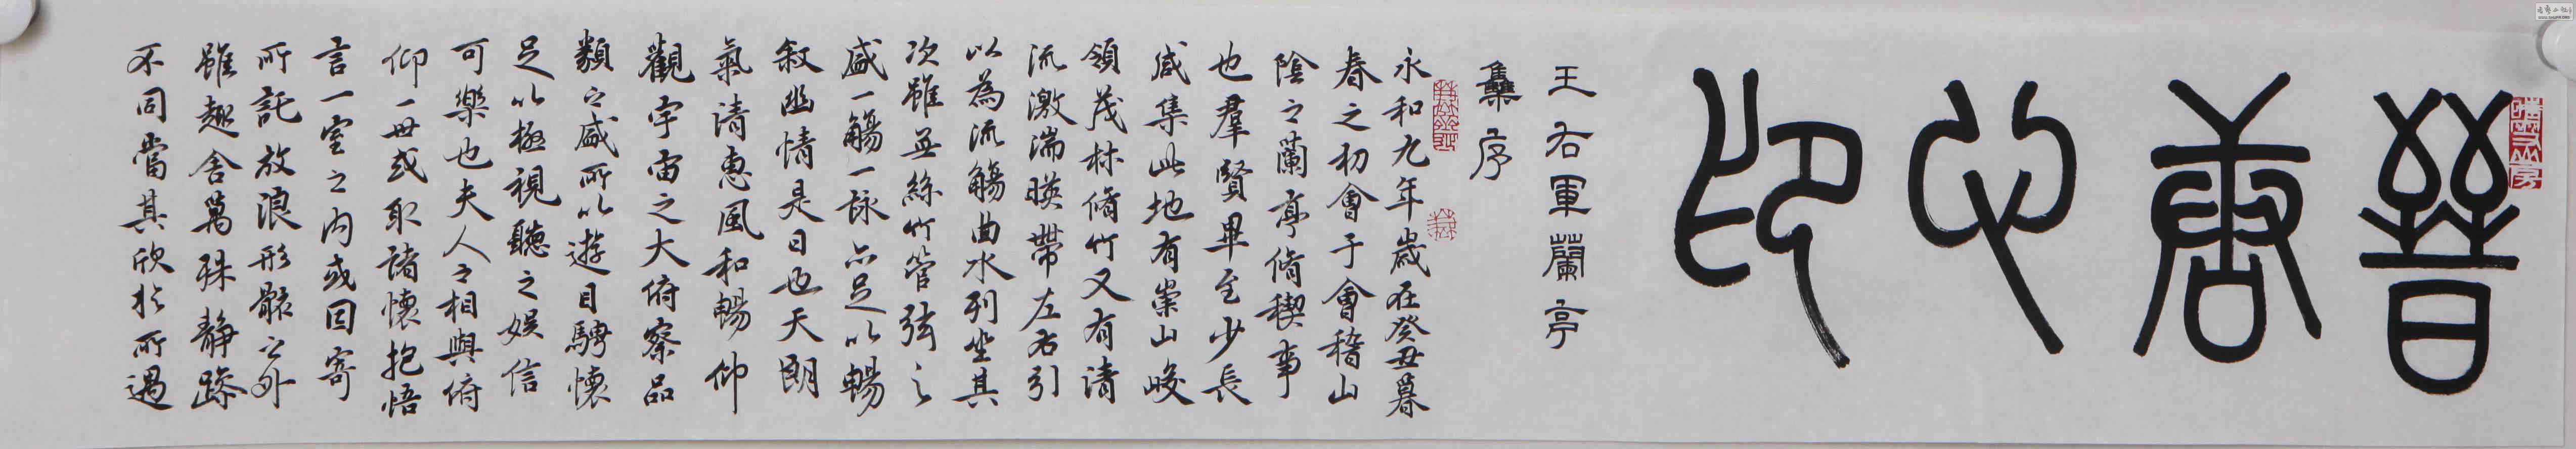 晉唐心印
王右軍蘭亭
雧序
永和九年歲在癸丑暮
春之初會于會稽山
陰之蘭亭脩稧事
也羣賢畢至少長
咸集此地有崇山峻
領茂林脩竹又有清
流激湍暎帶左右引
以為流觴曲水列坐其
次雖無絲竹管弦之
盛一觴一詠亦足以暢
敘幽情是日也天朗
氣清惠風和暢仰
觀宇宙之大俯察品
類之盛所以遊目騁懷
足以極視聽之娛信
可樂也夫人之相與俯
仰一世或取諸懷抱悟
言一室之內或因寄
所託放浪形骸之外
雖趣舍萬殊靜躁
不同當其欣於所遇